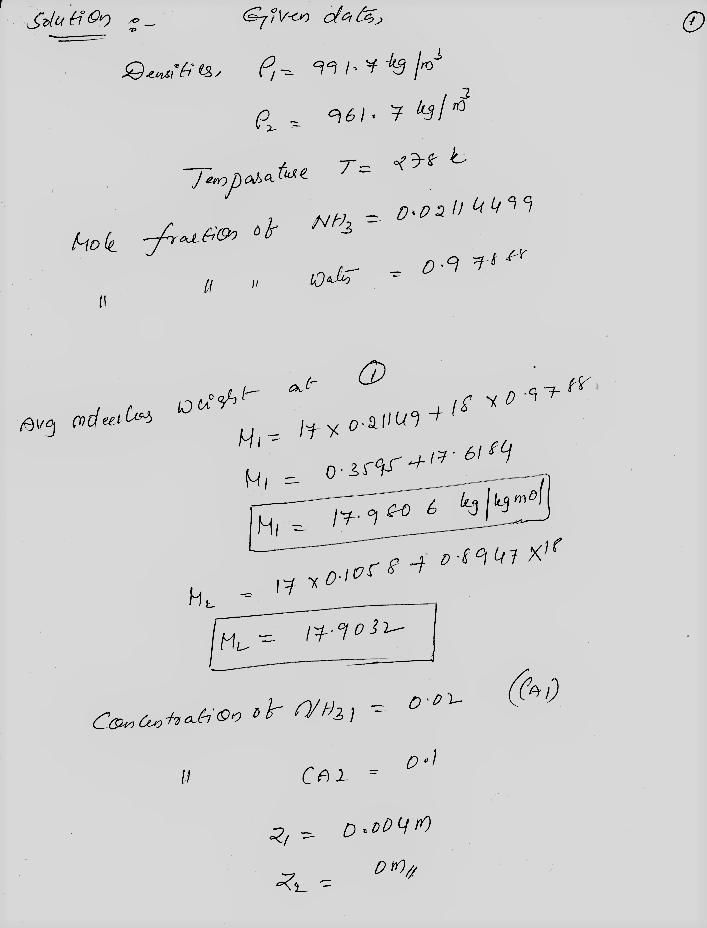 Solution :- Given data, ①
Densities, ρ₁ = 991.7 kg/m³
ρ₂ = 961.7 kg/m³
Temparature T = 278 k
Mole fraction of NH₃ = 0.02114499
" " " Water = 0.97888
Avg molecular weight at ①
M₁ = 17 × 0.21149 + 18 × 0.9788
M₁ = 0.3595 + 17.6184
M₁ = 17.9806 kg/kgmol
M₂ = 17 × 0.1058 + 0.8947 × 18
M₂ = 17.9032
Concentration of NH₃1 = 0.02 (CA1)
" CA2 = 0.1
Z₁ = 0.004 m
Z₂ = 0 m//